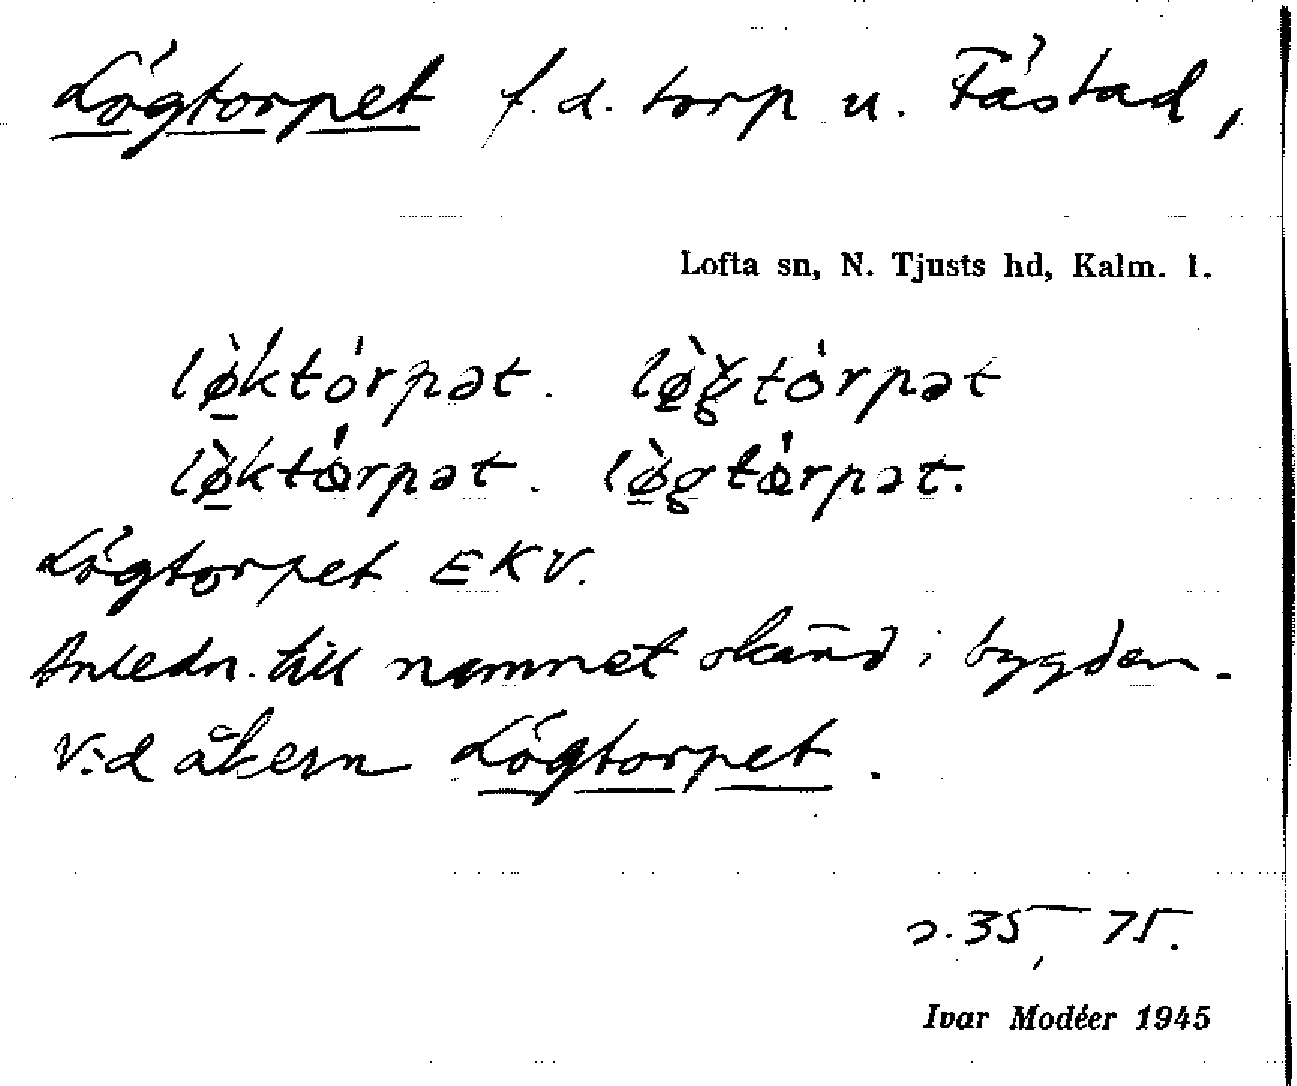 Lögtorpet f.d. torp u. Fästad,
Lofta sn, N. Tjusts hd, Kalm. l.
lø̀którpət. lø̀gtórpət
lø̀ktɷ́rpət. lø̀gtɷ́rpət.
Lögtorpet EKV.
Anledn. till namnet okänd i bygden.
Vid åkern Lögtorpet.
s. 35, 75.
Ivar Modéer 1945